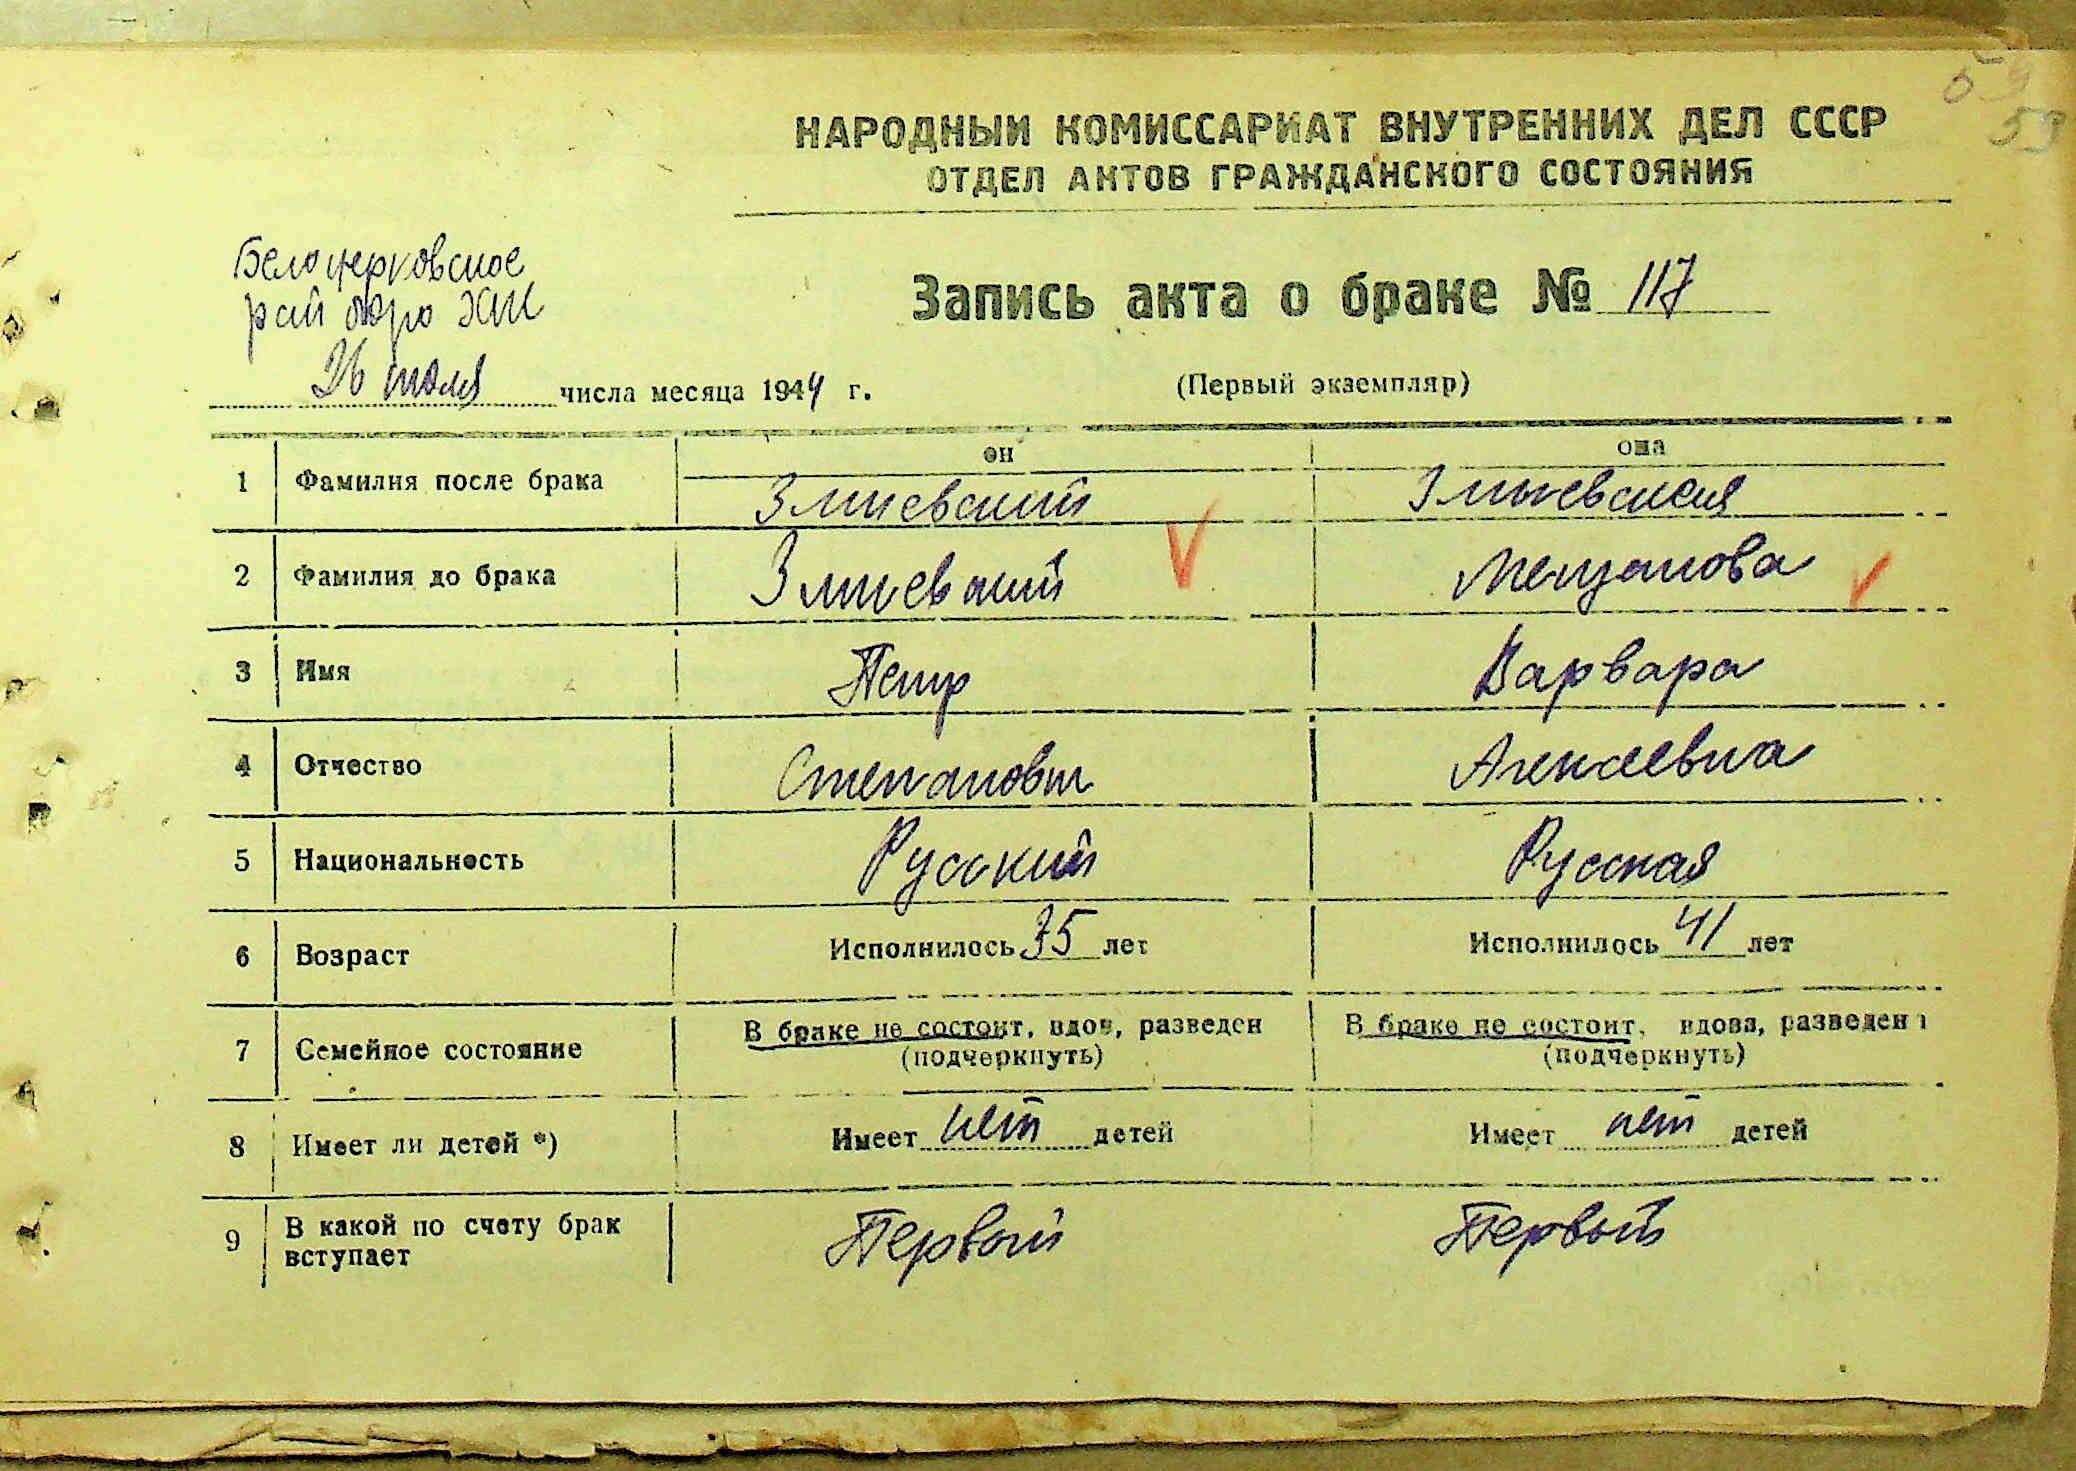 59
59
НАРОДНЫЙ КОМИССАРИАТ ВНУТРЕННИХ ДЕЛ СССР
ОТДЕЛ АКТОВ ГРАЖДАНСКОГО СОСТОЯНИЯ
Белоцерковское
рай бюро ЗАГС
Запись акта о браке № 117
26 июля числа месяца 1944 г.
(Первый экземпляр)
он она
1 Фамилия после брака Змиевский Змиевская
2 Фамилия до брака Змиевский
3 Имя Петр Варвара
4 Отчество Степанович Алексеевна
5 Национальность Русский Русская
6 Возраст Исполнилось 35 лет Исполнилось 41 лет
7 Семейное состояние В браке не состоит, вдов, разведен В браке не состоит, вдова, разведен
(подчеркнуть) (подчеркнуть)
8 Имеет ли детей *) Имеет нет детей Имеет нет детей
9 В какой по счету брак вступает Первый Первый